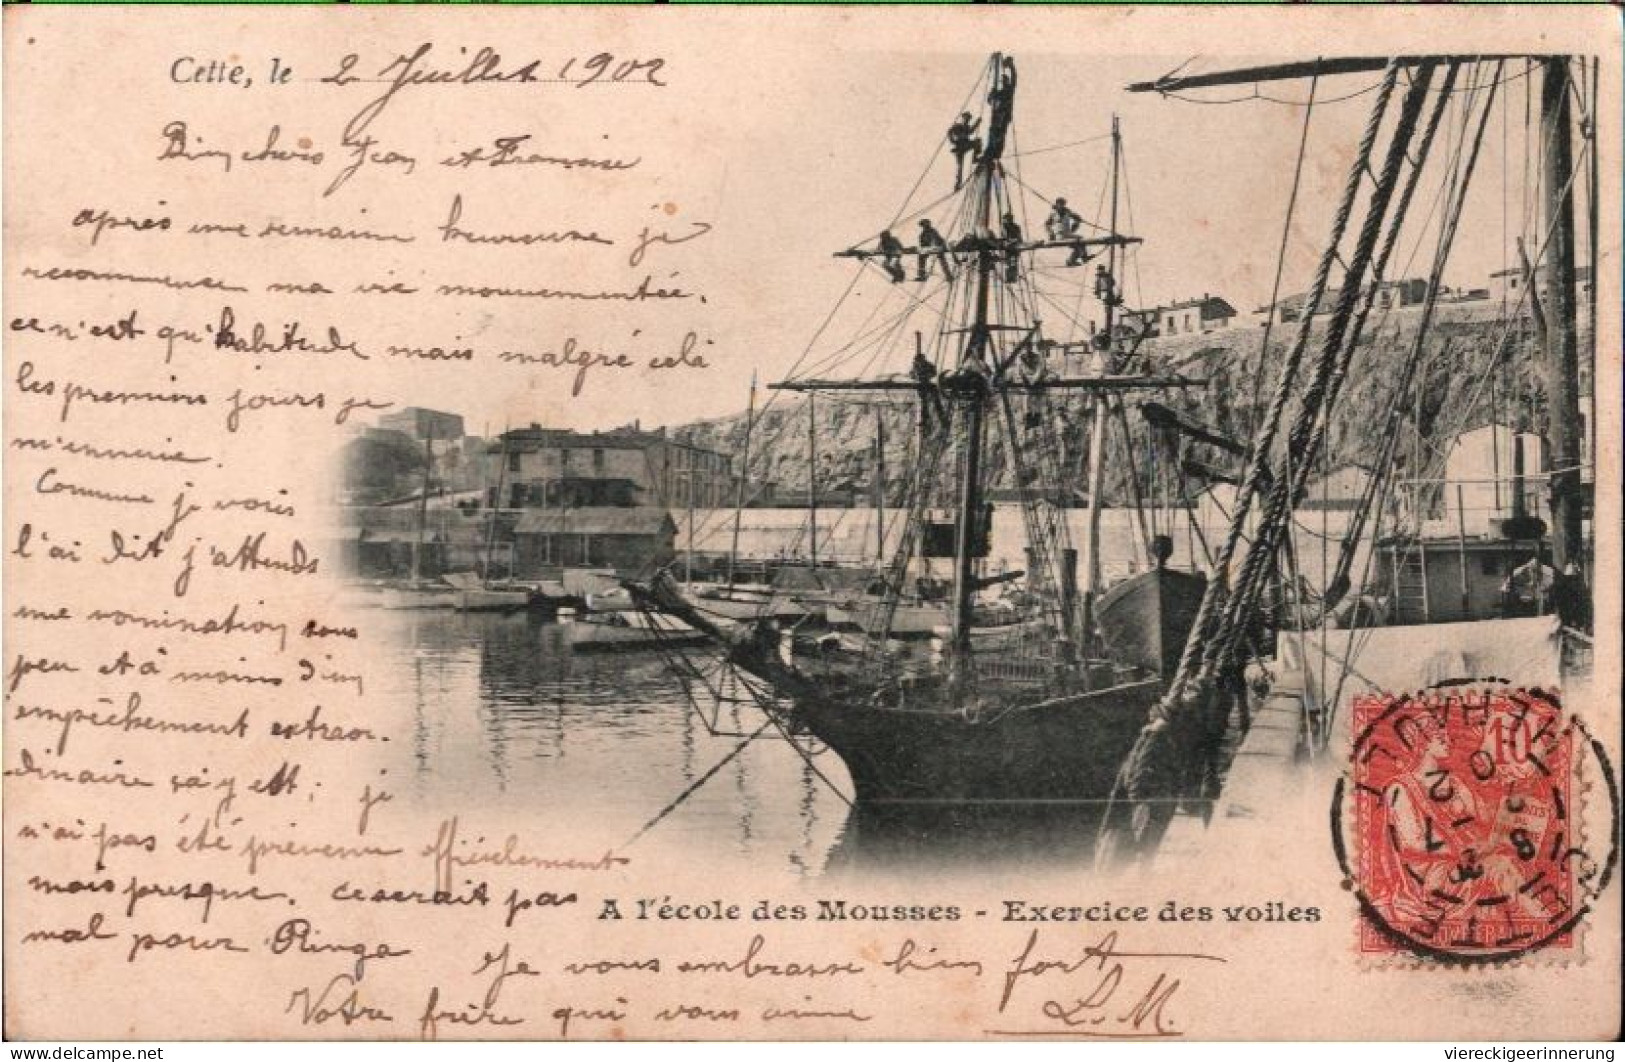 Cette, le 2 Juillet 1902
Bien chers Jean et Françoise
après une semaine heureuse je
recommence ma vie mouvementée.
ce n'est qu'habitude mais malgré celà
les premiers jours je
m'ennuie.
Comme je vous
l'ai dit j'attends
une nomination sous
peu et à moins d'un
empêchement extraor-
dinaire ça y est; je
n'ai pas été prévenu officiellement
mais presque. ce serait pas
mal pour Ringa
A l'école des Mousses - Exercice des voiles
Je vous embrasse bien fort
Votre frère qui vous aime L.M.
HERAULT
10
viereckigeerinnerung
www.delcampe.net